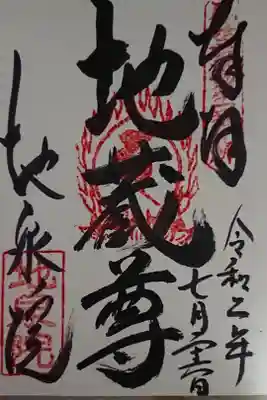 奉拝
令和二年
七月
地蔵尊
地泉院